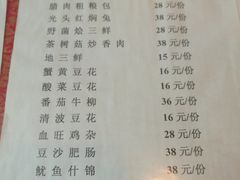 腊肉粗粮包 28元/份
光头红焖兔 38元/份
野菌烩三鲜 28元/份
茶树菇炒香肉 38元/份
地三鲜 15元/份
蟹黄豆花 16元/份
酸菜豆花 16元/份
番茄牛柳 36元/份
清波豆花 16元/份
血旺鸡杂 28元/份
豆沙肥肠 38元/份
鱿鱼什锦 38元/份